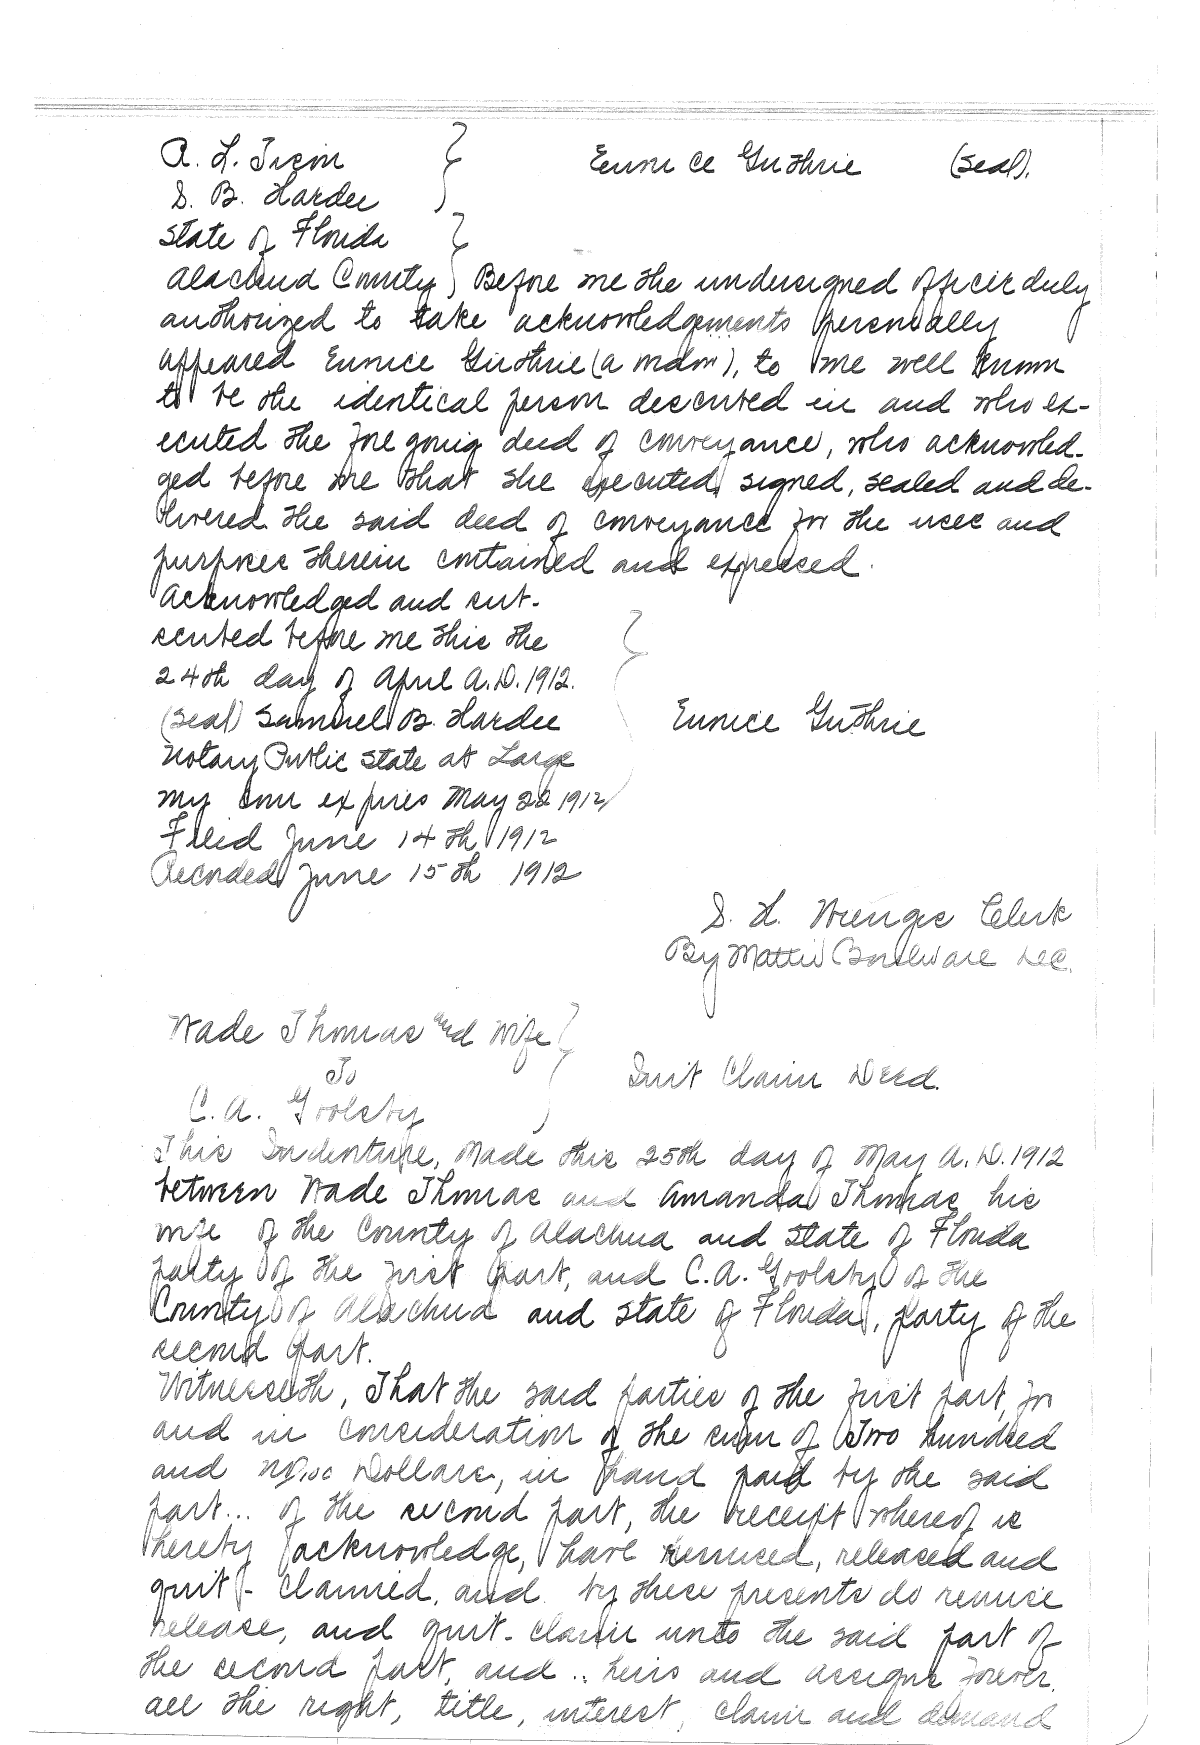 A. L.
S. B. Hardee
Eunice Guthrie (seal).
State of Florida
Alachua County } Before me the undersigned officer duly
authorized to take acknowledgements personally
appeared Eunice Guthrie (a wdw), to me well known
to be the identical person described in and who ex-
ecuted the fore going deed of conveyance, who acknowled-
ged before me that she executed, signed, sealed and de-
livered the said deed of conveyance for the uses and
purposes therein contained and expressed.
Acknowledged and sub-
scribed before me this the
24th day of April A.D. 1912.
(Seal) Samuel B. Hardee
Eunice Guthrie
Notary Public State at Large
my com expires May 22 1912
Filed June 14th 1912
Recorded June 15th 1912
S. H. Wienges Clerk
By Mattie D.C.
Wade Thomas and Wife
To
C. A. Goolsby
Quit Claim Deed.
This Indenture, Made this 25th day of May A.D. 1912
between Wade Thomas and Amanda Thomas his
wife of the County of Alachua and State of Florida
party of the first part, and C.A. Goolsby of the
County of Alachua and State of Florida, party of the
second part.
Witnesseth, That the said parties of the first part, for
and in consideration of the sum of Two hundred
and no/00 Dollars, in hand paid by the said
part... of the second part, the receipt whereof is
hereby acknowledge, have remised, released and
quit- claimed, and by these presents do remise
release, and quit- claim unto the said part of
the second part, and .. heirs and assigns forever,
all the right, title, interest, claim and demand